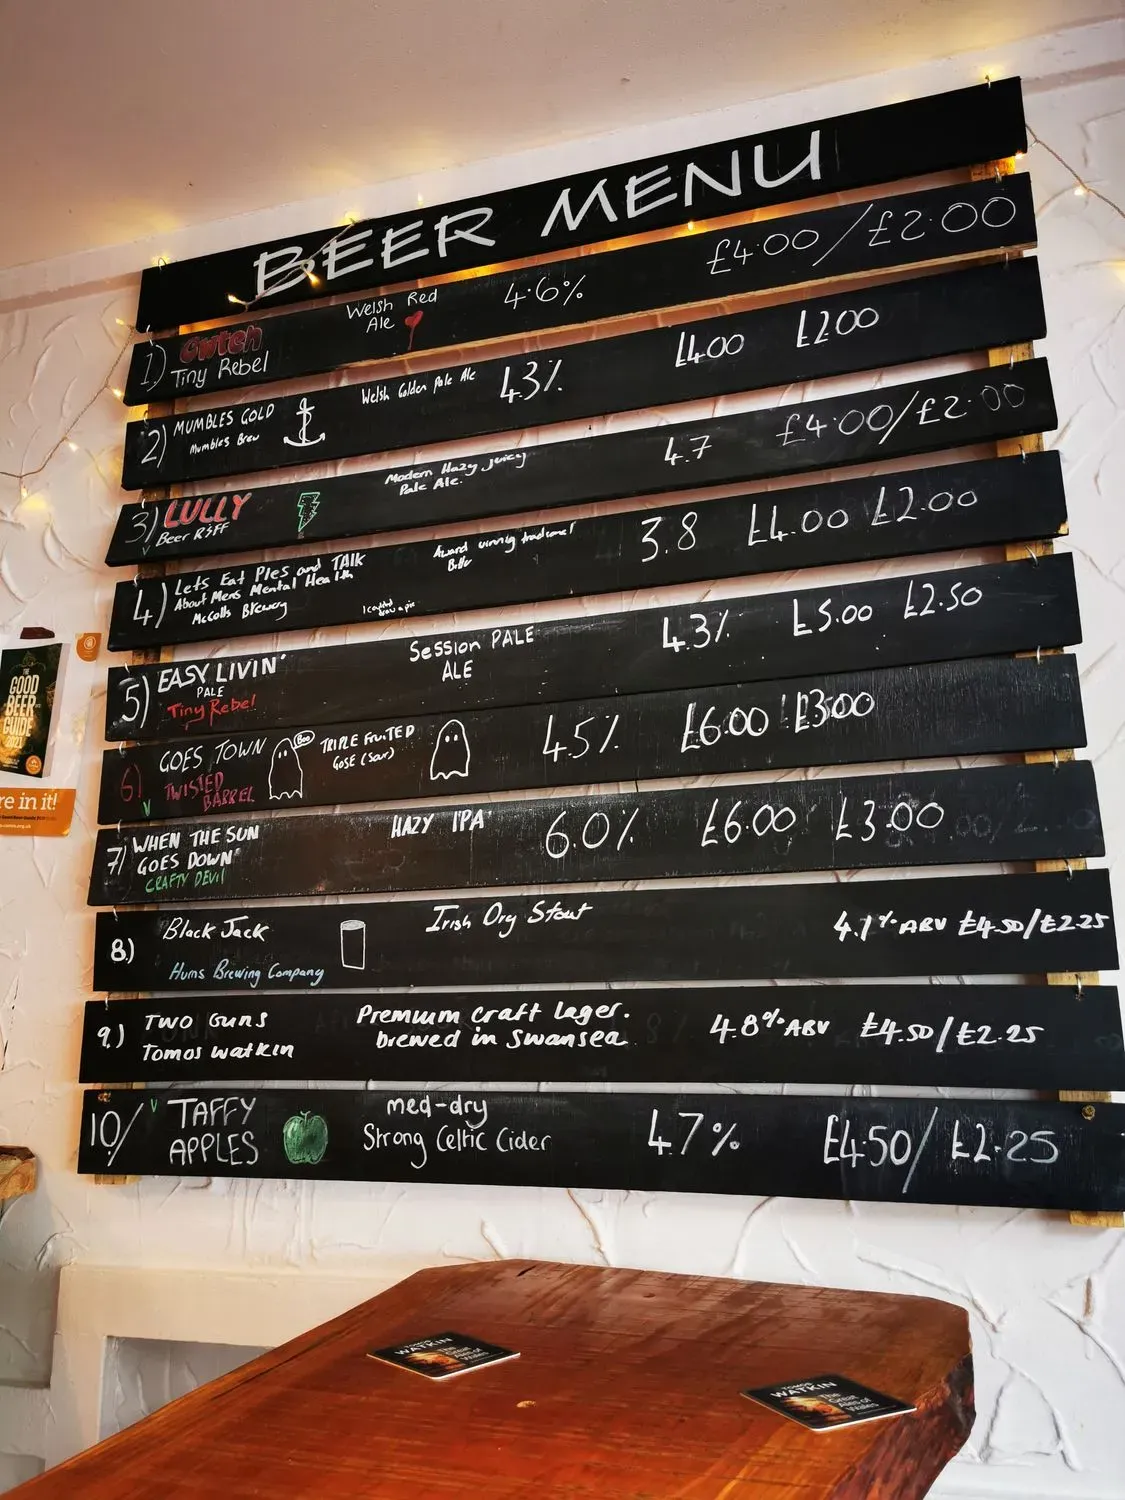 BEER MENU
1) Cwtch
Tiny Rebel
Welsh Red
Ale
4.6%
£4.00/£2.00
2) MUMBLES GOLD
Mumbles Brew
Welsh Golden Pale Ale
4.3%
£4.00 £2.00
3) LULLY
V
Beer Riff
Modern Hazy juicy
Pale Ale.
4.7
£4.00/£2.00
4) Lets Eat Pies and TAlK
About Mens Mental Health
McColls Brewery
Award winning
3.8
£4.00 £2.00
5) EASY LIVIN'
PALE
Tiny Rebel
Session PALE
ALE
4.3%
£5.00 £2.50
6) GOES TOWN
V
TWISTED
BARREL
Boo
TRIPLE FRUITED
GOSE (Sour)
4.5%
£6.00 £3.00
7) WHEN THE SUN
GOES DOWN'
CRAFTY DEVIl
HAZY IPA
6.0%
£6.00 £3.00
8.) Black Jack
Hurns Brewing Company
Irish Dry Stout
4.1% ABV £4.50/£2.25
9.) TWO GUNS
Tomos watkin
Premium craft lager.
brewed in Swansea
4.8% ABV £4.50/£2.25
10/ V TAFFY
APPLES
med-dry
Strong Celtic Cider
4.7%
£4.50/£2.25
THE
GOOD
BEER
GUIDE
2021
re in it!
WATKIN
The
Great
Ales of
Wales
TOMOS
WATKIN
The
Great
Ales of
Wales